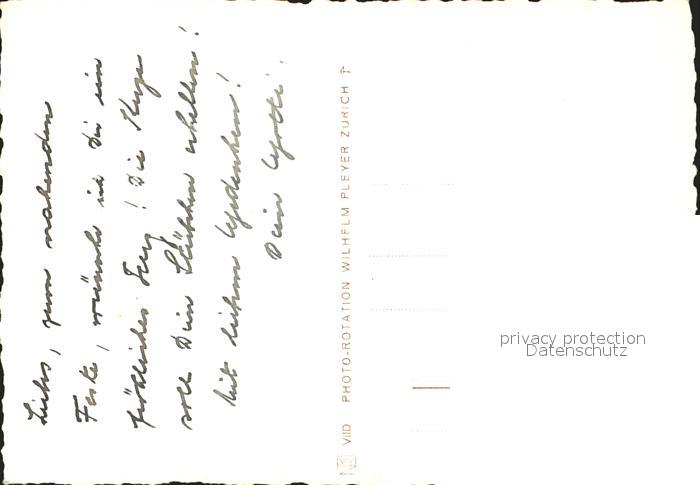 Liebes, zum nahenden
Feste, wünsche ich Dir ein
fröhliches Herz! Die Kerze
soll Dein Stübchen erhellen!
Mit liebem Gedenken!
Dein
VIID PHOTO-ROTATION WILHELM PLEYER ZÜRICH 7
privacy protection
Datenschutz